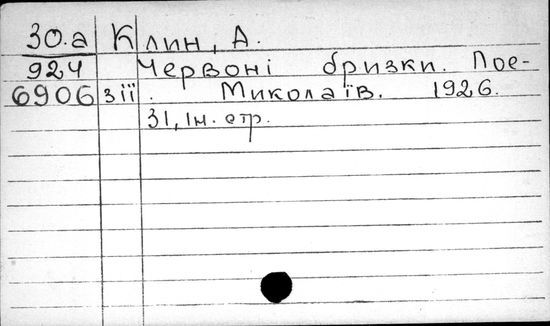 30.а Клин, А.
924 Червоні бризки. Пое-
6906 зії. Миколаїв. 1926.
31, Iн. стр.